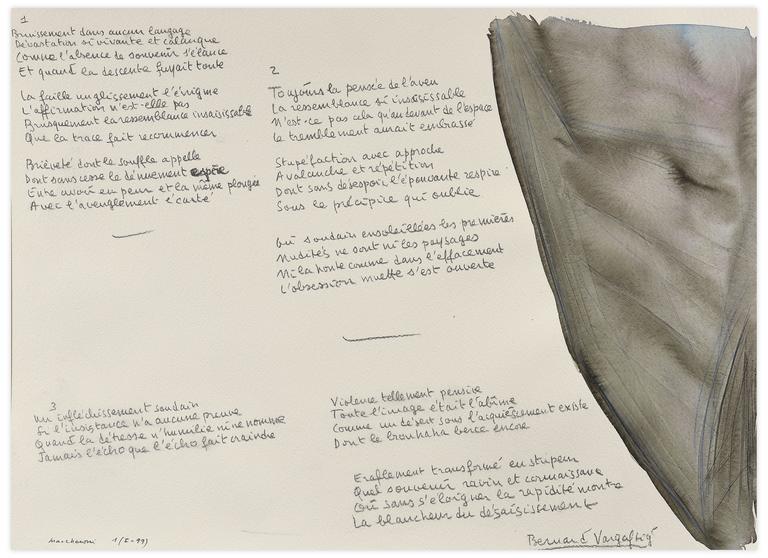 1
Bruissement dans aucun langage
Dévastation si vivante et calanque
Comme l'absence de souvenir s'élance
Et quand la descente fuyait toute
La faille un glissement l'énigme
L'affirmation n'est-elle pas
Brusquement la ressemblance insaisissable
Que la trace fait recommencer
Brièveté dont le souffle appelle
Dont sans cesse le dénuement
Entre avoir eu peur et la même plongée
Avec l'aveuglement écarté
2
Toujours la pensée de l'aveu
La ressemblance si insaisissable
N'est-ce pas cela qu'au devant de l'espace
Le tremblement aurait embrassé
Stupéfaction avec approche
Avalanche et répétition
Dont sans désespoir l'épouvante respire
Sous le précipice qui oublie
Où soudain ensoleillées les premières
Nudités ne sont ni les paysages
Ni la honte comme dans l'effacement
L'obsession muette s'est ouverte
3
Un infléchissement soudain
Si l'insistance n'a aucune preuve
Quand la détresse n'humilie ni ne nomme
Jamais l'écho que l'écho fait craindre
Violence tellement pensive
Toute l'image était l'abîme
Comme un désert sous l'acquiescement existe
Dont le brouhaha berce encore
Eraflement transformé en stupeur
Quel souvenir ravin et connaissance
Où sans s'éloigner la rapidité montre
La blancheur du désaisissement
Bernard Vargaftig
1/5-99)